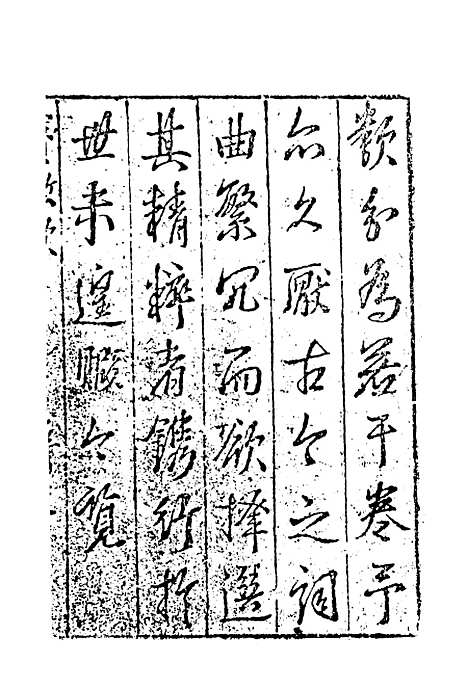 類分為若干卷予
亦久厭古今之詞
曲繁冗而欲擇選
其精粹者鐫行於
世未遑暇今覽